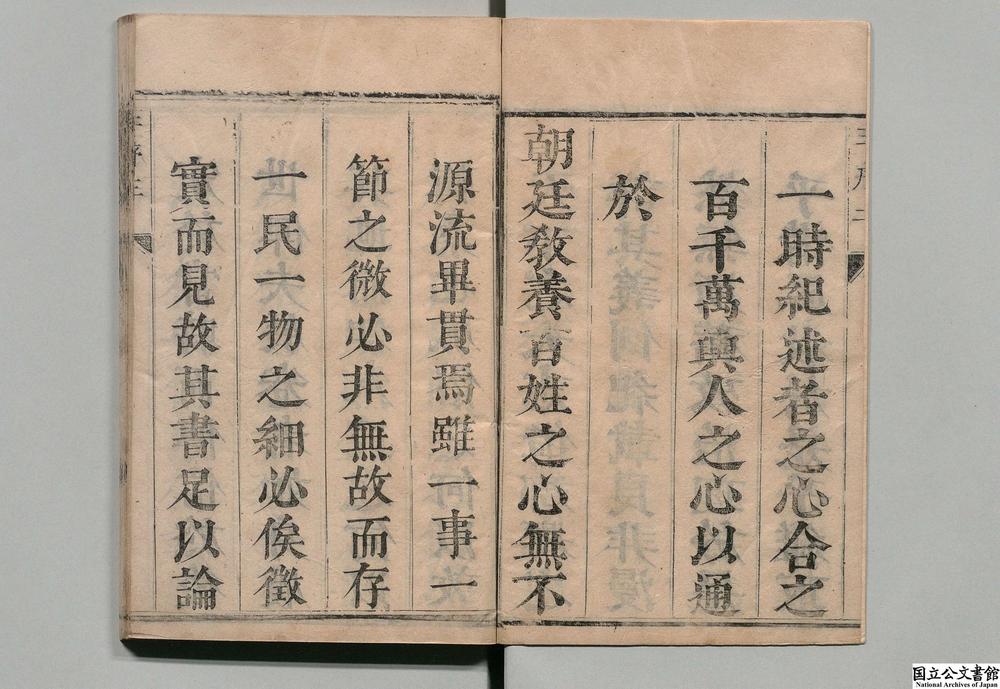 一時紀述者之心合之
百千萬輿人之心以通
於
朝廷敎養百姓之心無不
源流畢貫焉雖一事一
節之微必非無故而存
一民一物之細必俟徵
實而見故其書足以論
国立公文書館
National Archives of Japan